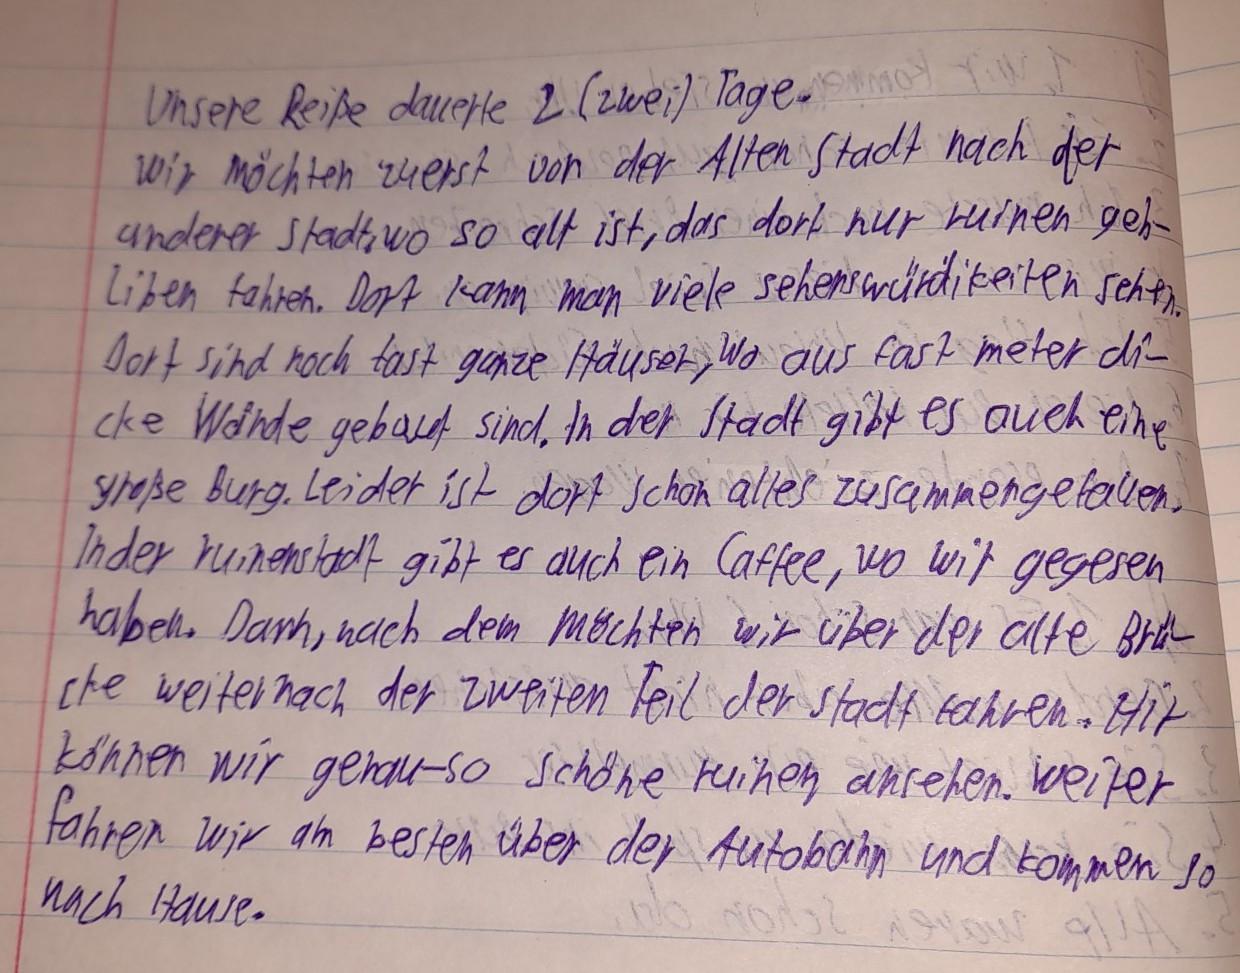 Unsere Reiße dauerte 2 (zwei) Tage.
Wir möchten zuerst von der Alten Stadt nach der
anderer Stadt, wo so alt ist, das dort nur ruinen geb-
liben fahren. Dort kann man viele sehenswürdikeiten sehen.
Dort sind noch fast ganze Häuser, wo aus fast meter di-
cke Wände gebaut sind. In der Stadt gibt es auch eine
große Burg. Leider ist dort schon alles zusammengefallen.
In der ruinenstadt gibt es auch ein Caffee, wo wir gegesen
haben. Dann, nach dem möchten wir über der alte Brü-
cke weiter nach der zweiten Teil der Stadt fahren. Hir
können wir genau-so schöne ruinen ansehen. Weiter
fahren wir am besten über der Autobahn und kommen so
nach Hause.